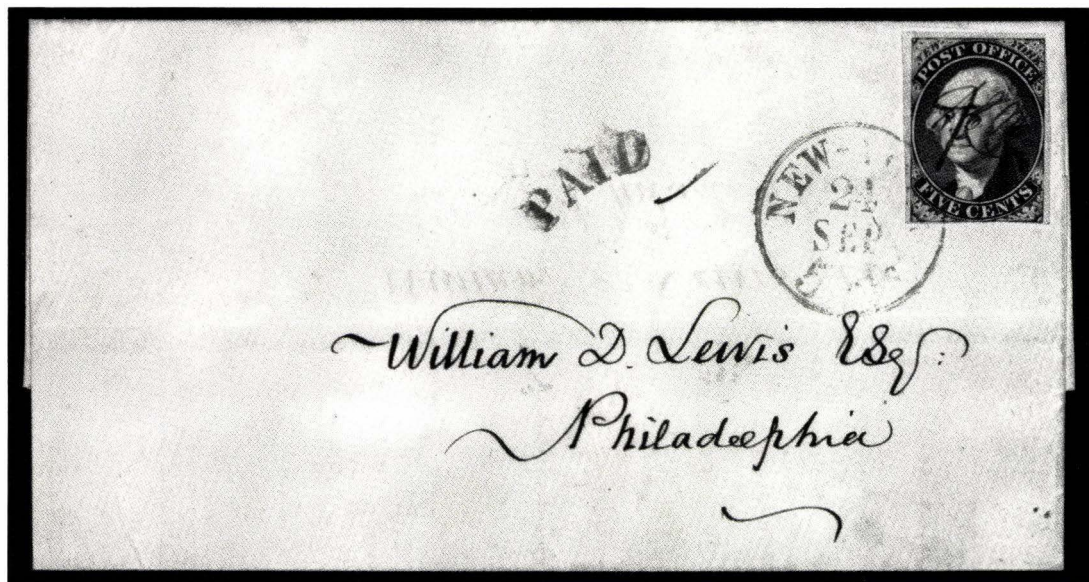 POST OFFICE
FIVE CENTS
PAID
NEW-
SEP
William D. Lewis Esq:
Philadelphia